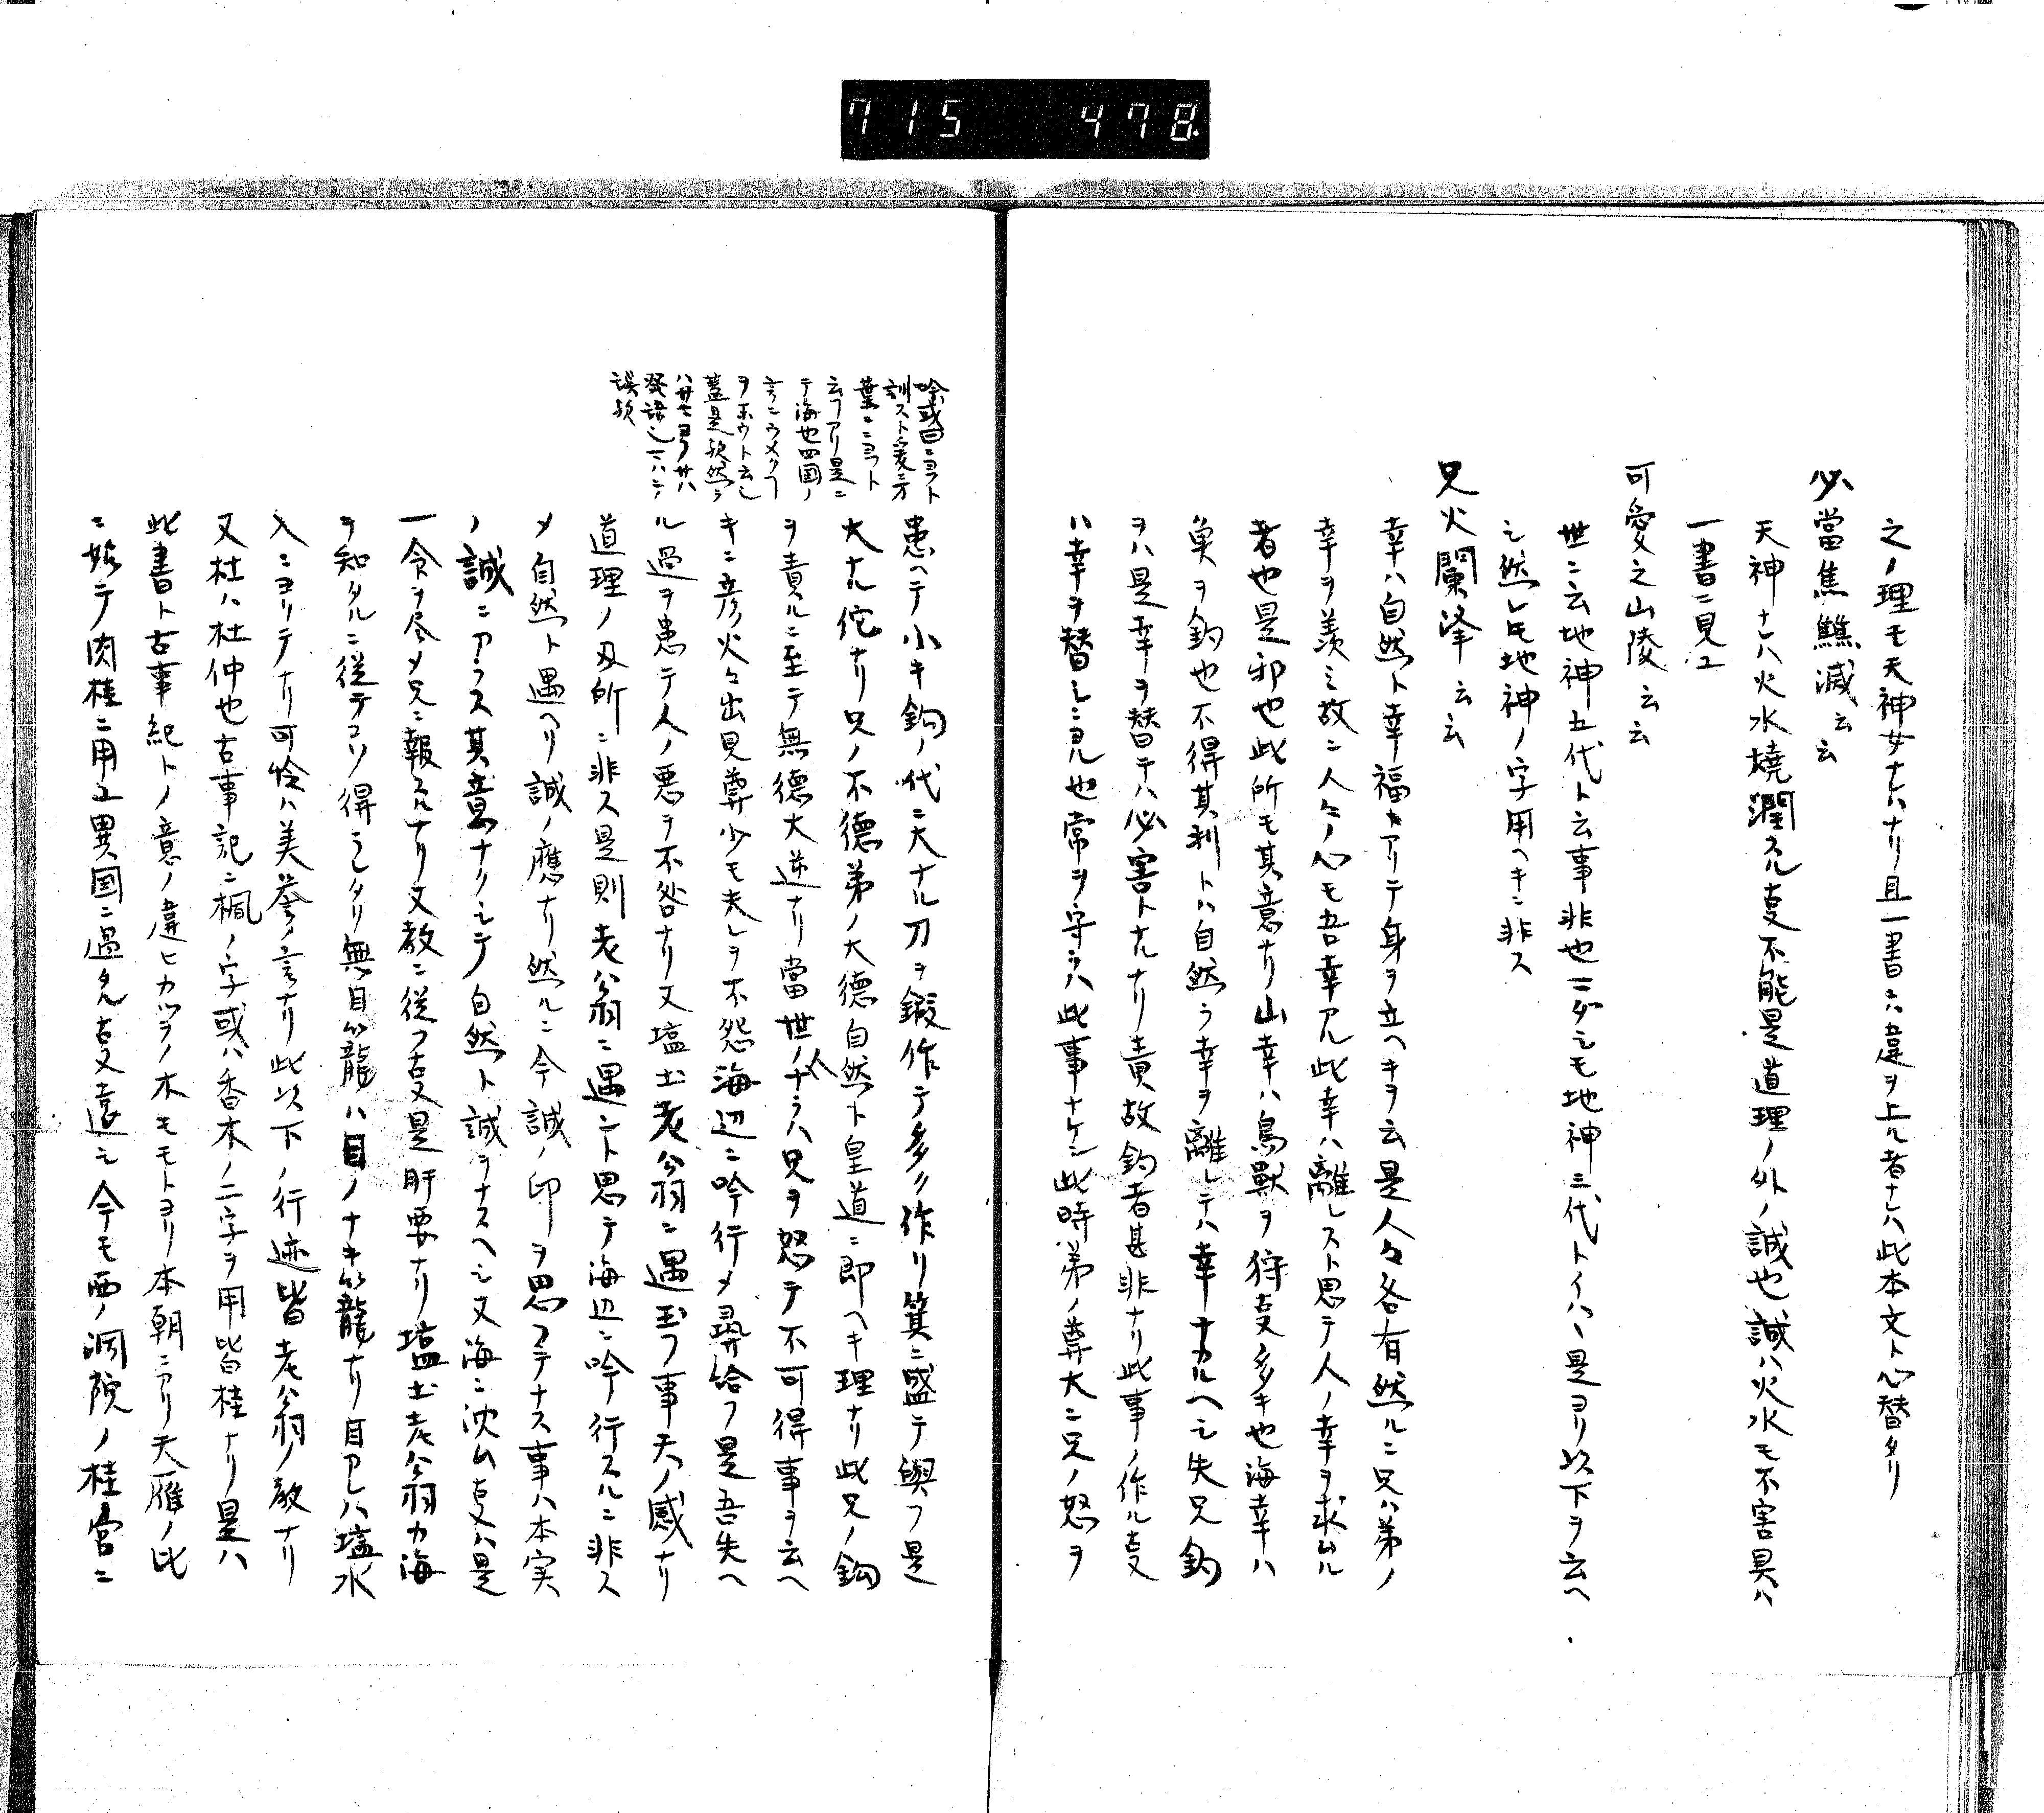 715 478
之ノ理モ天神女ナレハナリ且一書ニハ違ヲ上ル者ナレハ此本文ト心替タリ
必當焦𤓪滅云云
天神ナレハ火水焼潤スル叓不能是道理ノ外ノ誠也誠ハ火水モ不害具ハ
一書ニ見ユ
可愛之山陵云云
世ニ云地神五代ト云事非也一ダシモ地神三代トイハヽ是ヨリ以下ヲ云ヘ
シ然レ𪜈地神ノ字用ヘキニ非ス
兄火闌降云云
幸ハ自然ト幸福カアリテ身ヲ立ヘキヲ云是人々各有然ルニ兄ハ弟ノ
幸ヲ羨ミ故ニ人々ノ心モ吾幸アル此幸ハ離レスト思テ人ノ幸ヲ求ムル
者也是邪也此所モ其意ナリ山幸ハ鳥獸ヲ狩叓多キ也海幸ハ
魚ヲ釣也不得其利トハ自然ラ幸ヲ離レテハ幸ナカルヘシ失兄鈎
ヲハ是幸ヲ替テハ必害トナルナリ責故鈎者甚非ナリ此事ノ作ル叓
ハ幸ヲ替シニヨル也常ヲ守ラハ此事ナケン此時弟ノ尊大ニ兄ノ怒ヲ
吟或曰ニヨフト
訓スト爰ニ万
葉ニニヨフト
云フアリ是ニ
テ海也四国ノ
言ニウメクフ
ヲ
蓋是歟然ラ
発語シ
誤歟
患ヘテ小キ鈎ノ代ニ大ナル刀ヲ鍛作テ多ク作リ箕ニ盛テ與フ是
大ナル佗ナリ兄ノ不德弟ノ大德自然ト皇道ニ即ヘキ理ナリ此兄ノ鈎
ヲ責ルニ至テ無德大逆ナリ當世ノ人ナラハ兄ヲ怒テ不可得事ヲ云ヘ
キニ彦火々出見尊少モ夫レヲ不怨海辺ニ吟行メ尋給フ是吾失ヘ
ル過ヲ患テ人ノ悪ヲ不咎ナリ又塩土老翁ニ遇玉フ事天ノ感ナリ
道理ノ及所ニ非ス是則老翁ニ遇ント思テ海辺ニ吟行スルニ非ス
メ自然ト遇ヘリ誠ノ應ナリ然ルニ今誠ノ印ヲ思フテナス事ハ本実
ノ誠ニアラス其意ナクシテ自然ト誠ヲナスヘシ又海ニ沈ム叓ハ是
一命ヲ尽メ兄ニ報スルナリ又教ニ從フ叓是肝要ナリ塩土老翁カ海
ヲ知タルニ従テコソ得ラレタリ無目籠ハ目ノナキ籠ナリ目アレハ塩水
入ニヨリテナリ可怜ハ美誉ノ言ナリ此以下ノ行迹皆老翁ノ教ナリ
又杜ハ杜仲也古事記ニ楓ノ字或ハ香木ノ二字ヲ用皆桂ナリ是ハ
此書ト古事紀トノ意ノ違ヒカツラノ木モモトヨリ本朝ニアリ天雁ノ比
ニ始テ肉桂ニ用ユ異国ニ過タル叓遠シ今モ西ノ洞院ノ桂宮ニ